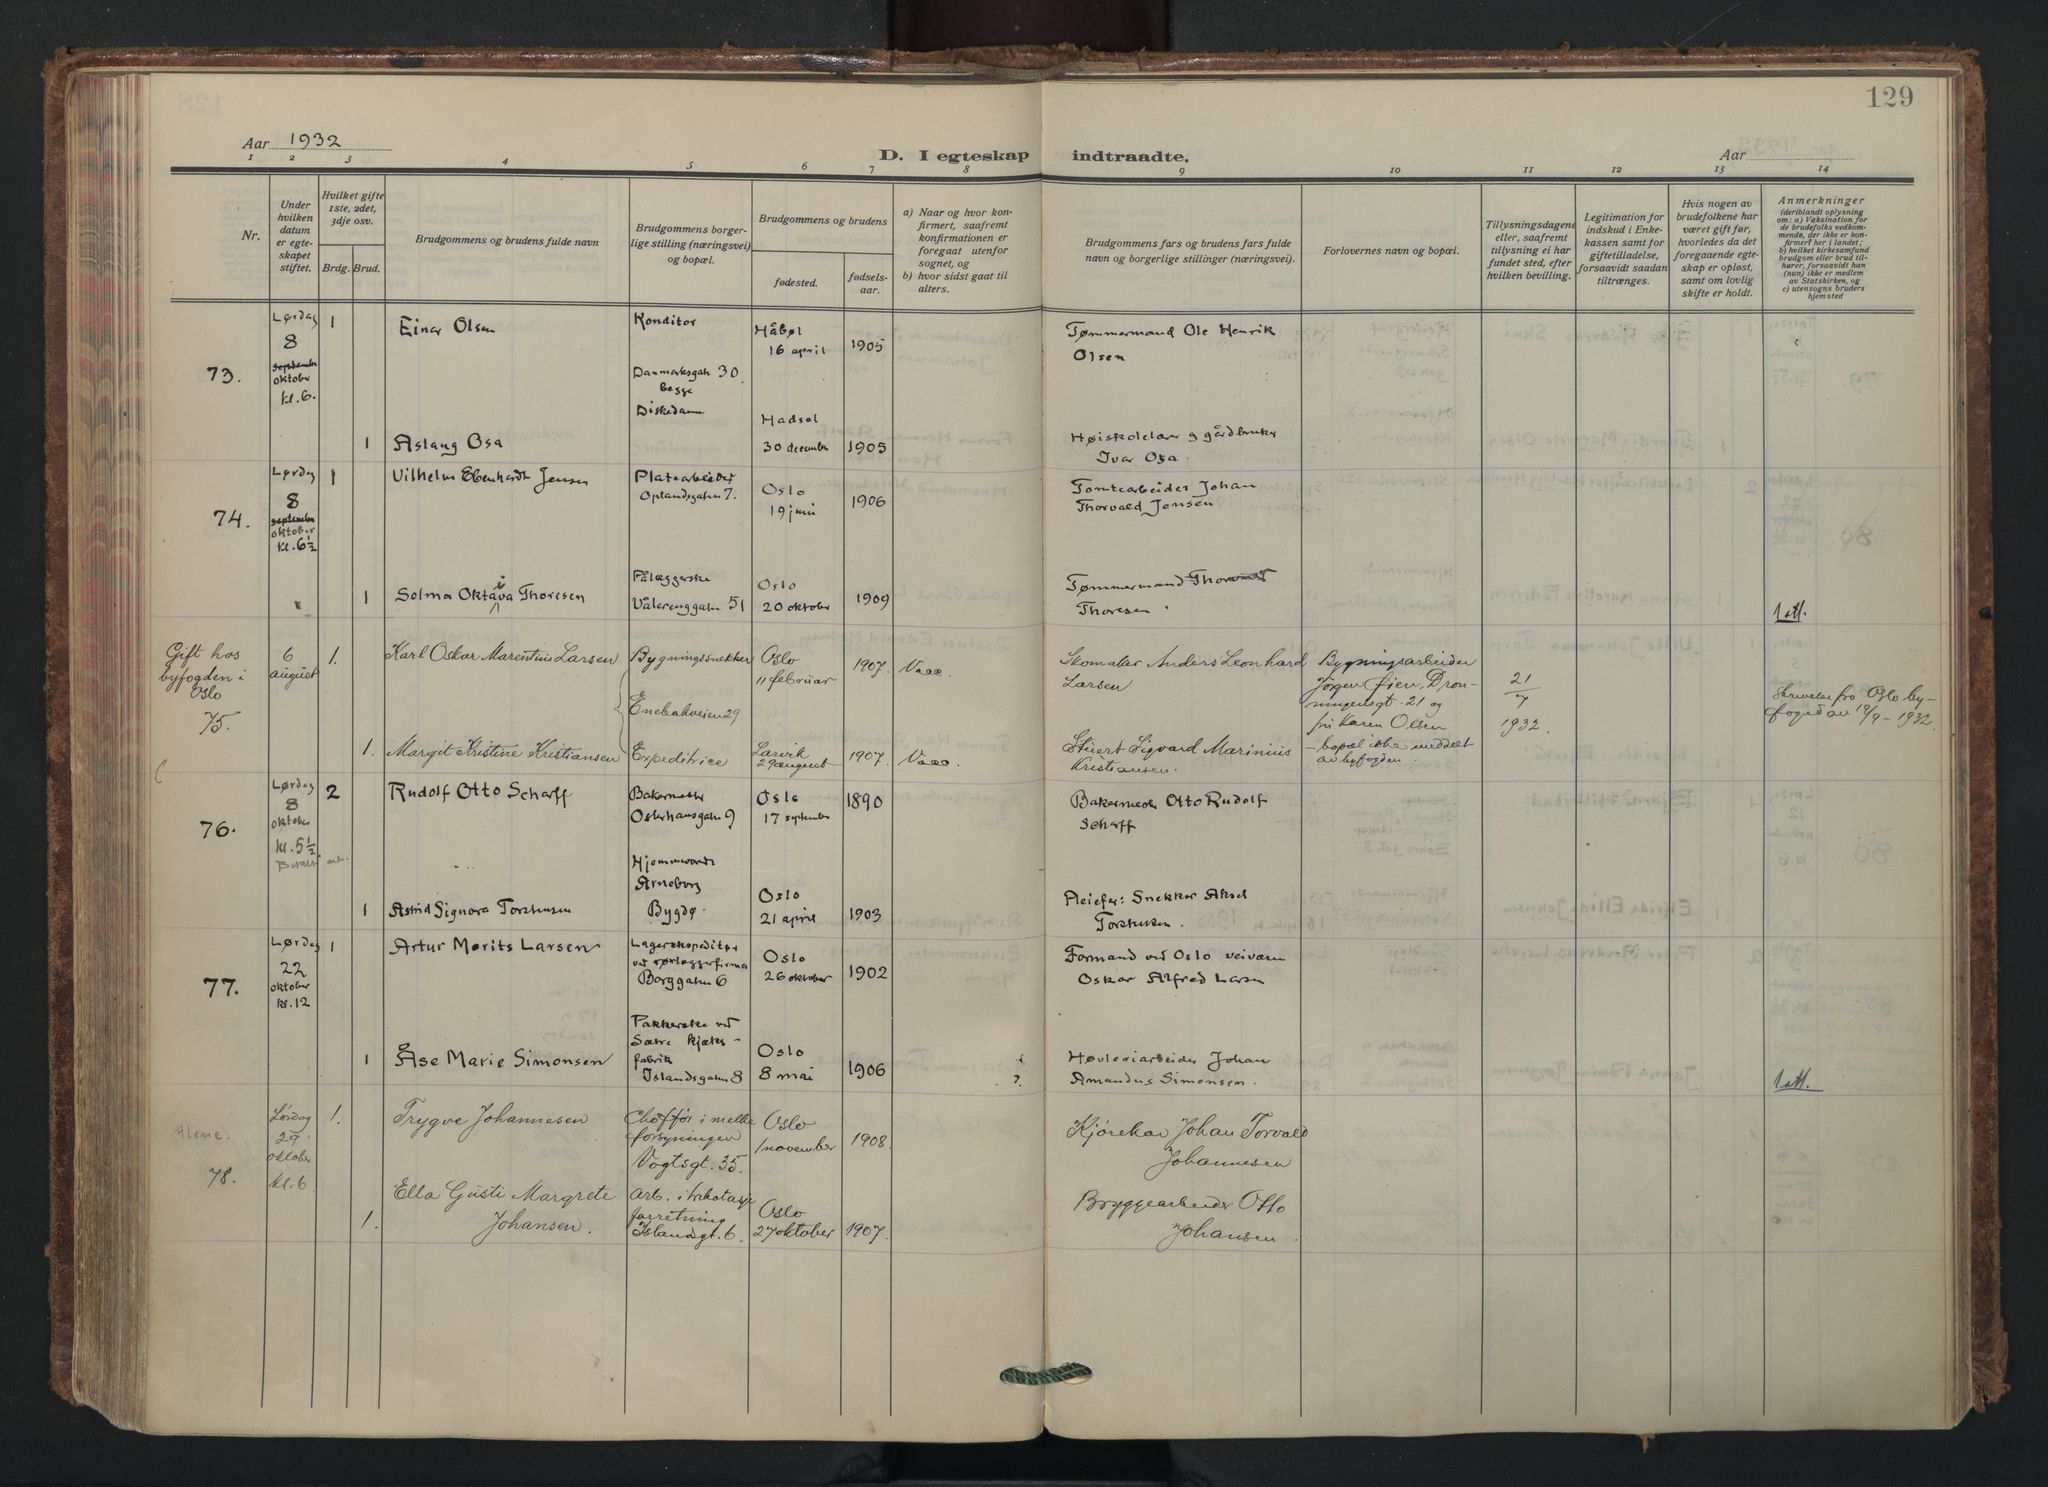 129
Aar 1932
D. I egteskap indtraadte.
Aar
1 2 3 4 5 6 7 8 9 10 11 12 13 14
Nr.
Under
hvilken
datum
er egte-
skapet
stiftet.
Hvilket gifte
1ste, 2det,
3dje osv.
Brdg. Brud.
Brudgommens og brudens fulde navn
Brudgommens borger-
lige stilling (næringsvei)
og bopæl.
Brudgommens og brudens
fødested.
fødsels-
aar.
a) Naar og hvor kon-
firmert, saafremt
konfirmationen er
foregaat utenfor
sognet, og
b) hvor sidst gaat til
alters.
Brudgommens fars og brudens fars fulde
navn og borgerlige stillinger (næringsvei).
Forlovernes navn og bopæl.
Tillysningsdagene
eller, saafremt
tillysning ei har
fundet sted, efter
hvilken bevilling.
Legitimation for
indskud i Enke-
kassen samt for
giftetilladelse,
forsaavidt saadan
tiltrænges.
Hvis nogen av
brudefolkene har
været gift før,
hvorledes da det
foregaaende egte-
skap er opløst,
samt om lovlig
skifte er holdt.
Anmerkninger
(deriblandt oplysning
om: a) Vaksination for
de brudefolks vedkom-
mende, der ikke er kon-
firmert her i landet;
b) hvilket kirkesamfund
brudgom eller brud til-
hører, forsaavidt han
(hun) ikke er medlem
av Statskirken, og
c) utensogns bruders
hjemsted
73.
Lørdag
8
september
oktober
kl. 6.
1
Einar Olsen
Konditor
Danmarksgatn 30
begge
Håbøl
16 april
1905
Tømmermand Ole Henrik
Olsen
1
Aslaug Osa
Diskedame
Hadsel
30 december
1905
Høiskolelærer og gårdbruker
Ivar Osa
74.
Lørdag
8
september
oktober
kl. 6½
1
Vilhelm Ebenhardt Jensen
Platearbeider
Oplandsgatn 7.
Oslo
19 juni
1906
Tomtearbeider Johan
Thorvald Jensen
1
Solma Oktavia Thoresen
Pålæggerske
Vålerenggatn 51
Oslo
20 oktober
1909
Tømmermand
Thoresen
1 att.
Gift hos
byfogden i
Oslo
75.
6
august
1.
Karl Oskar Marentius Larsen
Bygningssnekker
Enebakveien 29
Oslo
11 februar
1907.
Vaa.
Skomaker Anders Leonhard
Larsen
Bygningsarbeider
Jørgen Øien, Dron-
ningensgt. 21 og
frk Karen Olsen
- bopæl ikke meddelt
av byfogden.
21/7
1932.
Skrivelse fra Oslo by-
foged av 19/9-1932.
1.
Margit Kristine Kristiansen
Expeditrice
Larvik
29 august
1907.
Vaa.
Stuert Sigvard Marinius
Kristiansen.
76.
Lørdag
8
oktober
kl. 5½
2
Rudolf Otto Scharff
Bakermester
Osterhausgatn 9
Oslo
17 september
1890
Bakermester Otto Rudolf
Scharff
1
Astrid Signora Torstensen
Hjemmeværende
Arneborg
Bygdø
Oslo
21 april
1903
Pleiefar: Snekker Aksel
Torstensen.
77.
Lørdag
22
oktober
kl. 12
1
Artur Morits Larsen
Lagerekspeditør
ved rørleggerfirma
Borggatn 6
Oslo
26 oktober
1902
Formand ved Oslo veivæsen
Oskar Alfred Larsen
1
Åse Marie Simonsen
Pakkerske ved
Sætre kjeks-
fabrik
Islandsgatn 8
Oslo
8 mai
1906
Høvleriarbeider Johan
Amandus Simonsen.
1 att.
Alene.
78.
Lørdag
29
oktober
kl. 6
1.
Trygve Johannesen
Chofför i melke
forsyningen
Vogtsgt. 35.
Oslo
1 november
1908.
Kjørekar Johan Torvald
Johannesen
1.
Ella Gusti Margrete
Johansen.
Arb. i trikotasje
forretning
Islandgt. 6.
Oslo
27 oktober
1907.
Bryggearbeider Otto
Johansen.